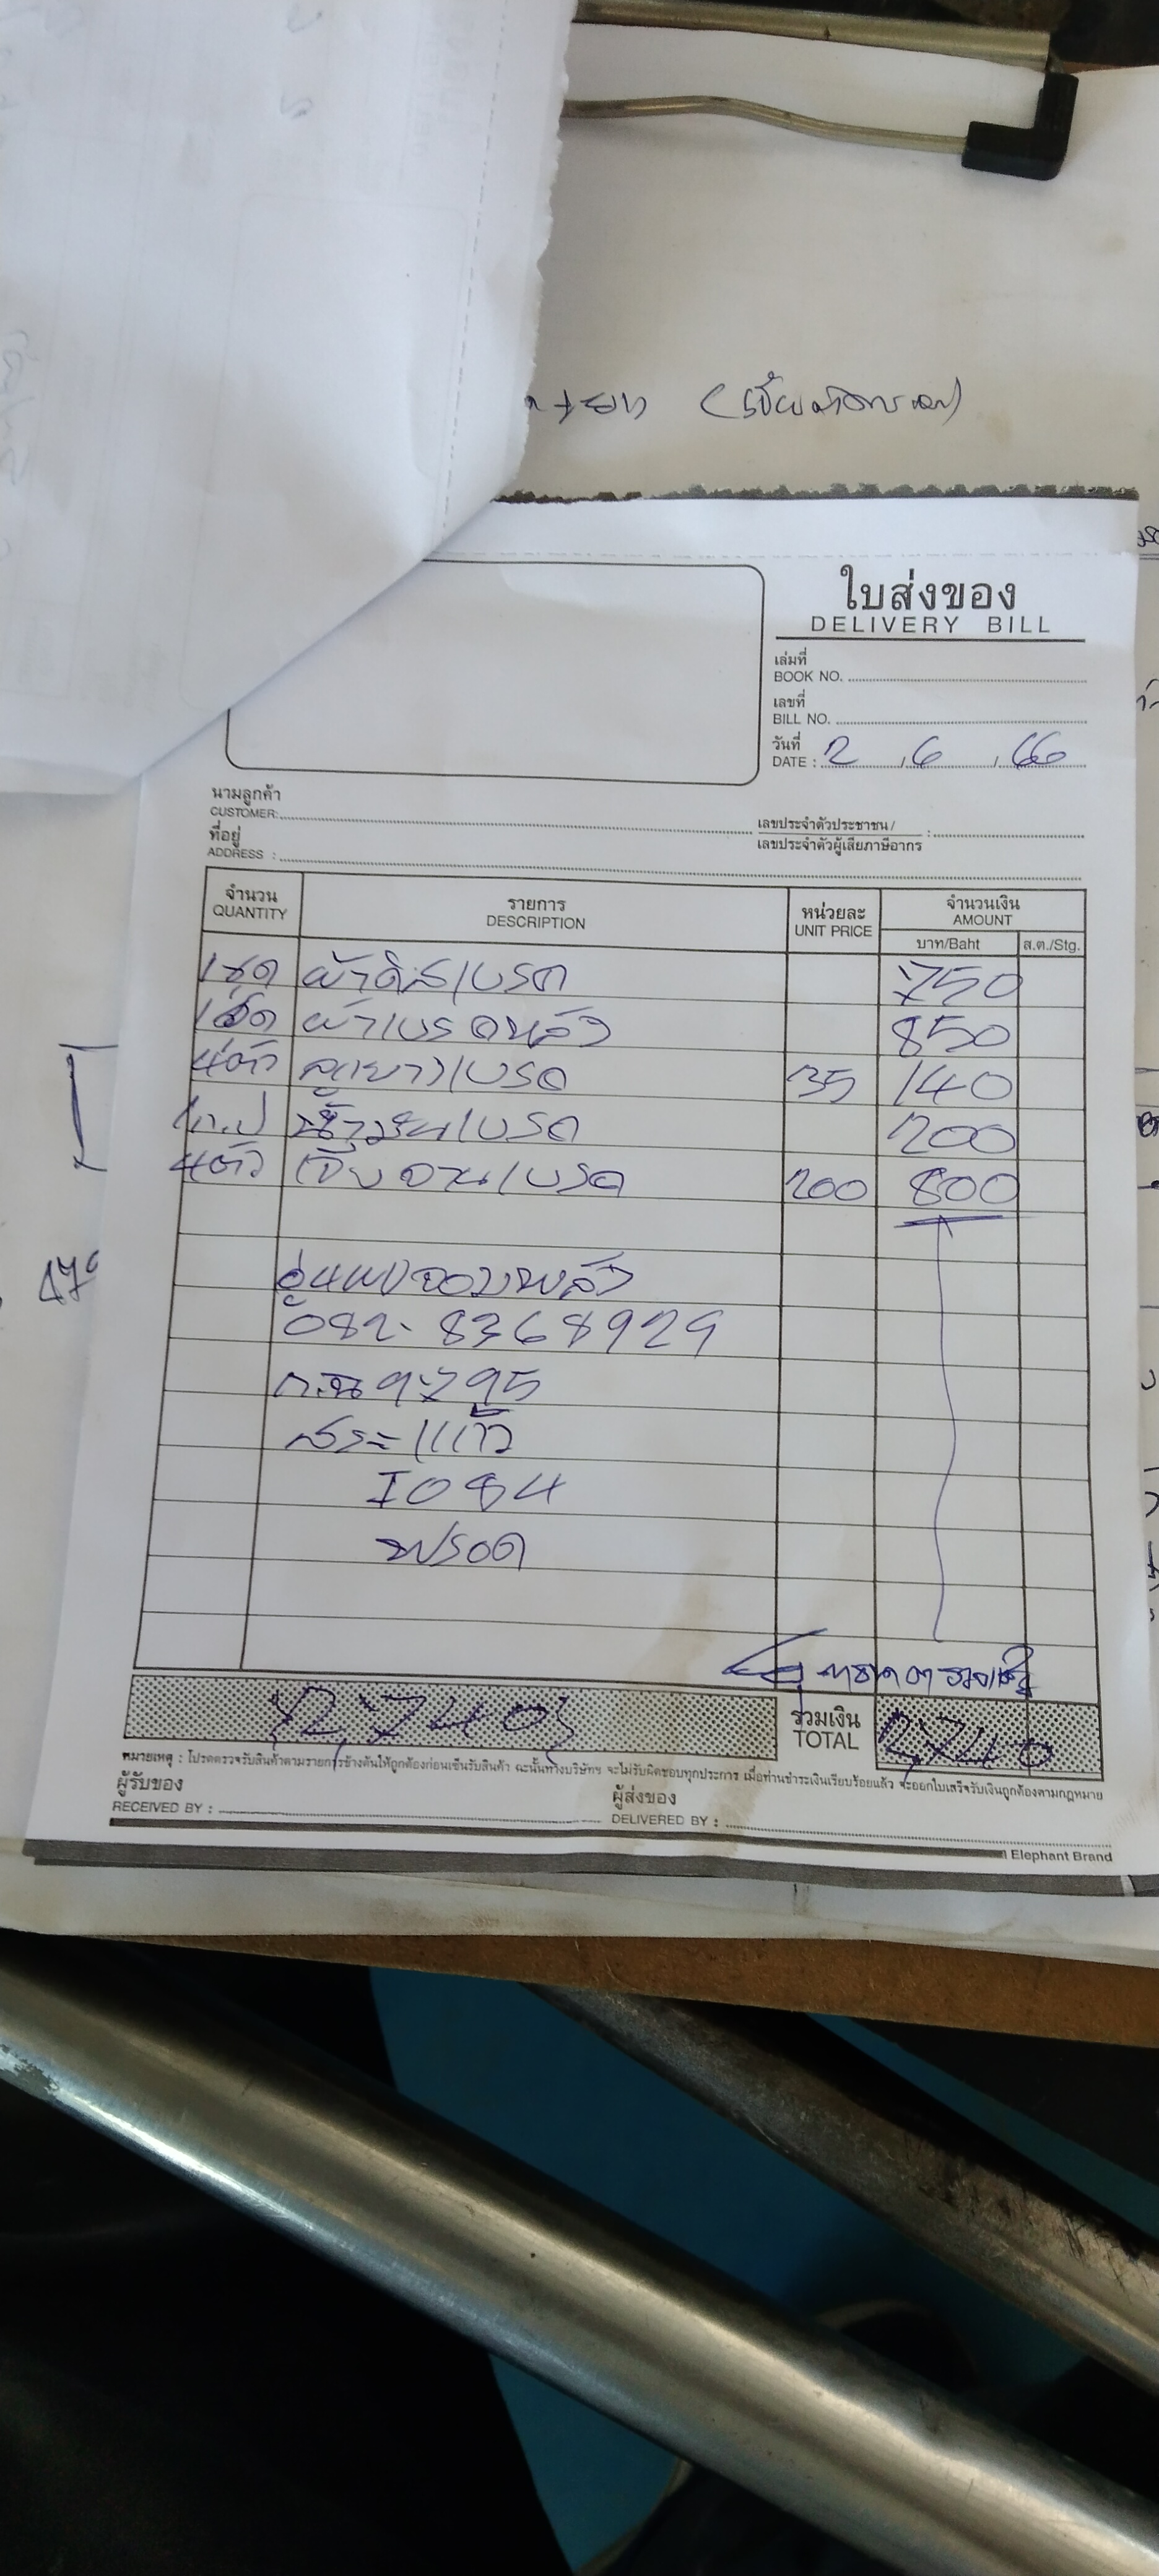 ใบส่งของ
DELIVERY BILL
เล่มที่
BOOK NO.
เลขที่
BILL NO.
วันที่
DATE : 2 / 6 / 66
นามลูกค้า
CUSTOMER:
เลขประจำตัวประชาชน /
เลขประจำตัวผู้เสียภาษีอากร :
ที่อยู่
ADDRESS :
จำนวน รายการ หน่วยละ จำนวนเงิน
QUANTITY DESCRIPTION UNIT PRICE AMOUNT
บาท/Baht ส.ต./Stg.
1ชุด ผ้าดิสเบรค 750
1ชุด ผ้าเบรคหลัง 850
4ตัว ลูกยางเบรค 35 140
1ก.ป น้ำมันเบรค 200
4ตัว เจียจานเบรค 200 800
082-8368929
สระแก้ว
รวมเงิน
2,740 TOTAL 2,740
หมายเหตุ : โปรดตรวจรับสินค้าตามรายการข้างต้นให้ถูกต้องก่อนเซ็นรับสินค้า ฉะนั้นทางบริษัทฯ จะไม่รับผิดชอบทุกประการ เมื่อท่านชำระเงินเรียบร้อยแล้ว จะออกใบเสร็จรับเงินถูกต้องตามกฎหมาย
ผู้รับของ ผู้ส่งของ
RECEIVED BY : DELIVERED BY :
Elephant Brand